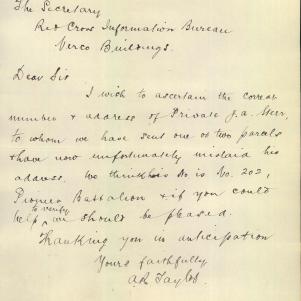 The Secretary
Red Cross Information Bureau
Verco Buildings.
Dear Sir
I wish to ascertain the correct
number & address of Private J.A. Steer,
to whom we have sent one or two parcels
& have now unfortunately mislaid his
address. We think his No is No. 202,
Pioneer Battalion & if you could
to verify
help we should be pleased.
Thanking you in anticipation
Yours faithfully
Taylor.